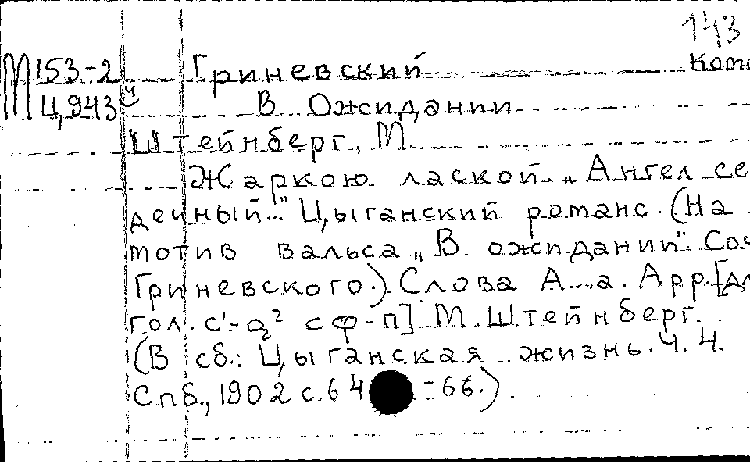 143
М 153-2 Гриневский
Ц 943 В Ожидании
Штейнберг, М.
Жаркою лаской... „Ангел се
дечный..." Цыганский романс. (На
мотив вальса „В ожидании". Соч
Гриневского.) Слова А...а. Арр. [дл
гол. с¹-а² с ф-п] М. Штейнберг.
(В сб.: Цыганская жизнь. Ч. 4.
Спб., 1902 с. 64-66.)